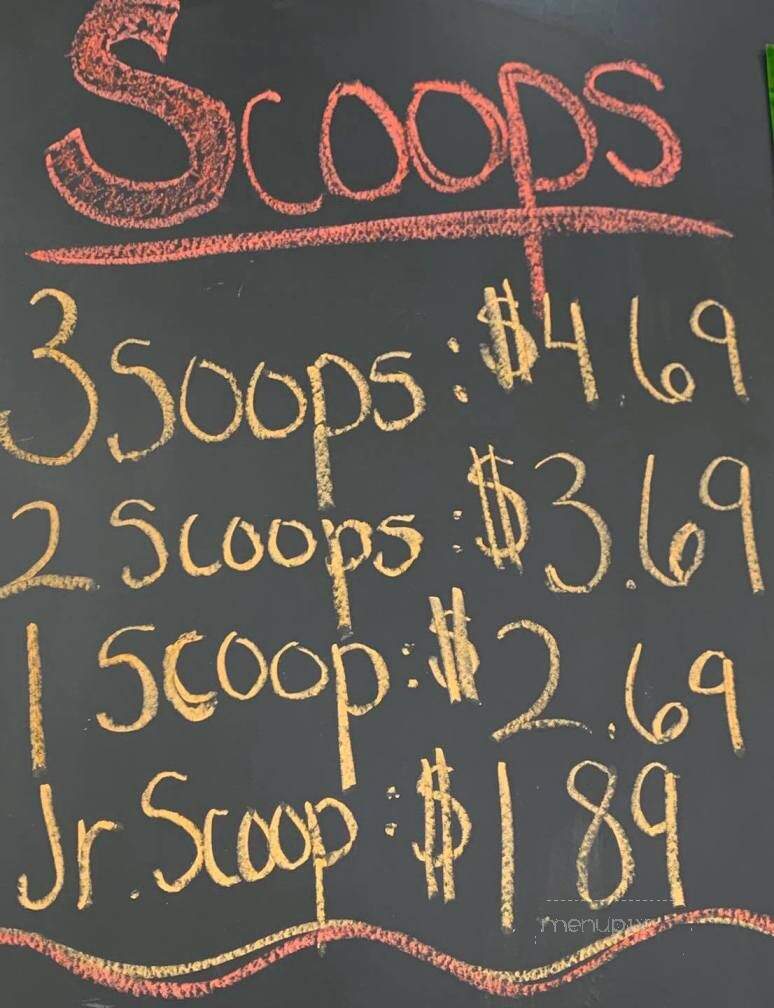 Scoops
3 soops: $4.69
2 Scoops: $3.69
1 Scoop: $2.69
Jr. Scoop: $1 89